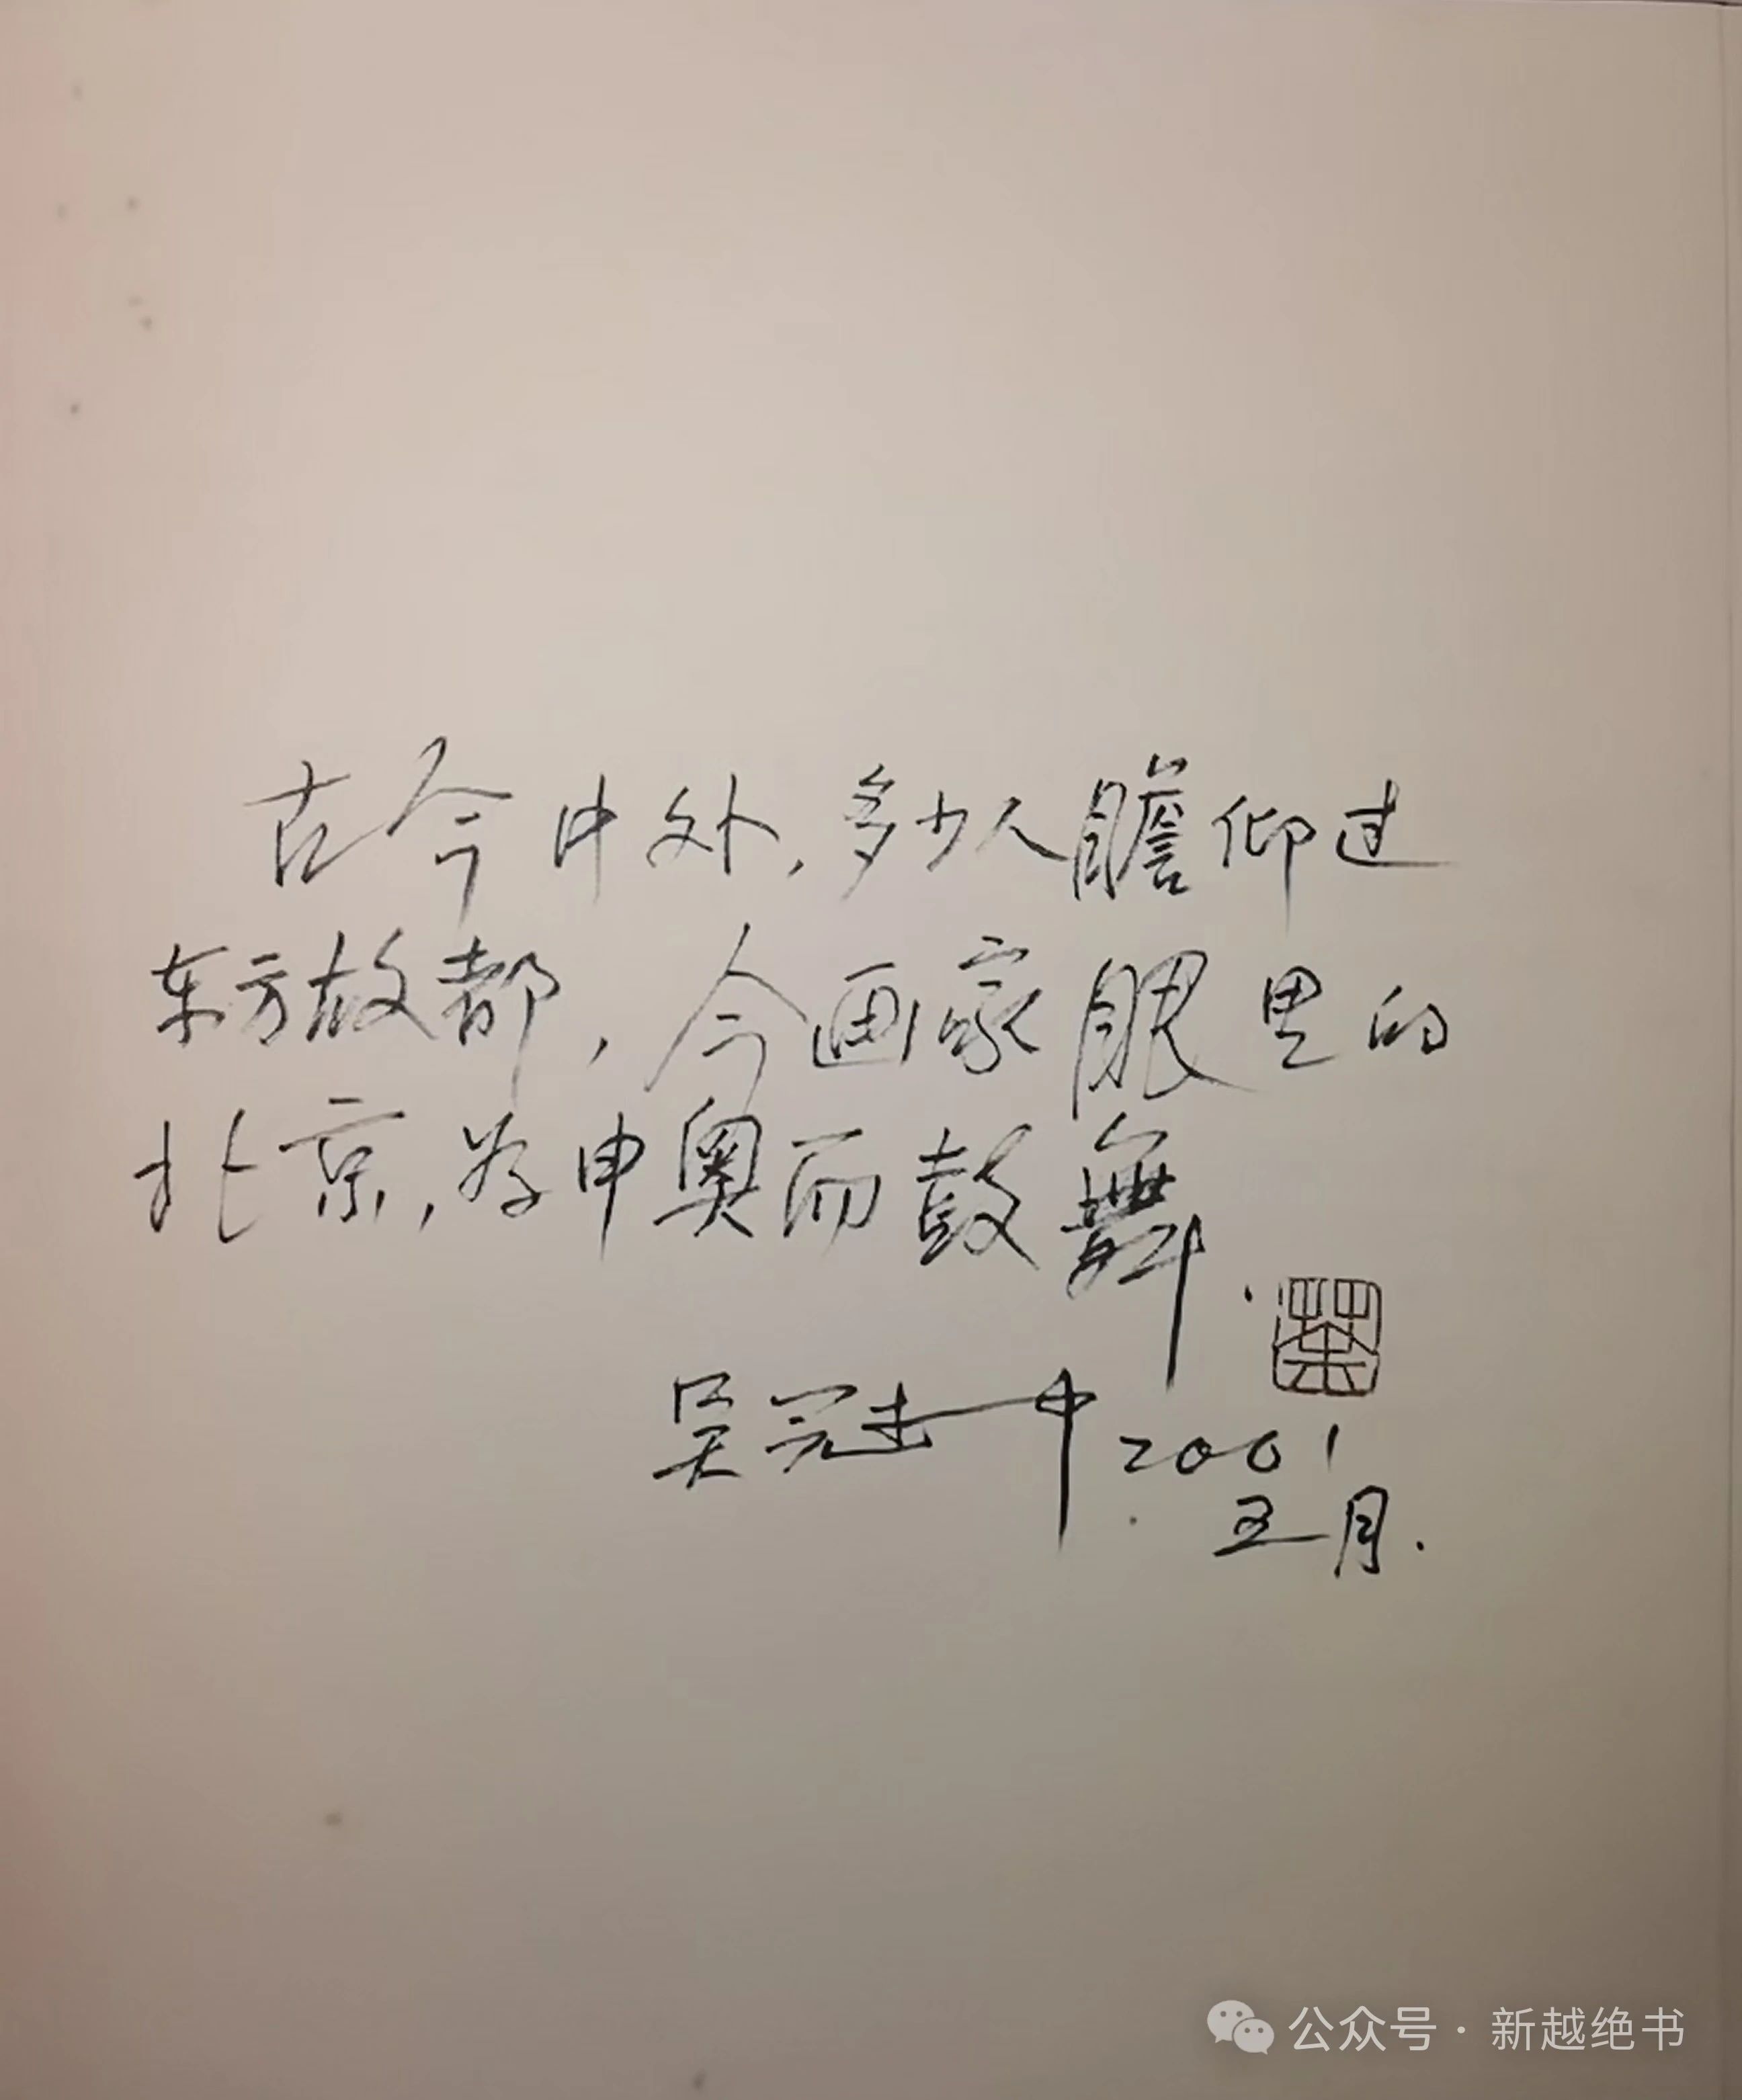 古今中外，多少人瞻仰过
东方故都，今画家眼里的
北京，为申奥而鼓舞.
荼
吴冠中2001
五月.
公众号·新越绝书